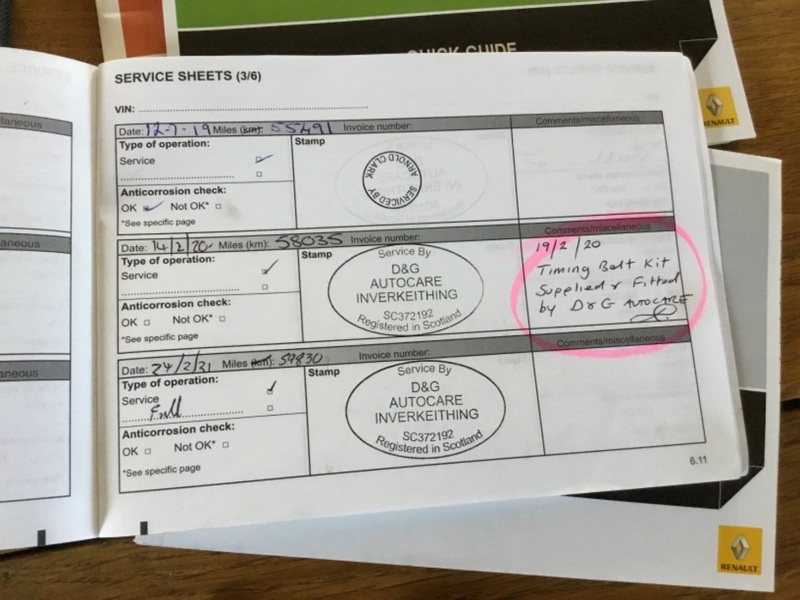 QUICK GUIDE
RENAULT
SERVICE SHEETS (3/6)
VIN:
Date: 12-7-19 Miles (km): 55491 Invoice number:
Comments/miscellaneous
Type of operation:
Service
Stamp
SERVICED BY
ARNOLD CLARK
Anticorrosion check:
OK Not OK*
*See specific page
Date: 14/2/20 Miles (km): 58035 Invoice number:
Comments/miscellaneous
Type of operation:
Service
Stamp
Service By
D&G
AUTOCARE
INVERKEITHING
SC372192
Registered in Scotland
19/2/20
Timing Belt Kit
Supplied & Fitted
by D&G AUTOCARE
Anticorrosion check:
OK Not OK*
*See specific page
Date: 24/2/21 Miles (km): 59830 Invoice number:
Comments/miscellaneous
Type of operation:
Service
Full
Stamp
Service By
D&G
AUTOCARE
INVERKEITHING
SC372192
Registered in Scotland
Anticorrosion check:
OK Not OK*
*See specific page
6.11
RENAULT